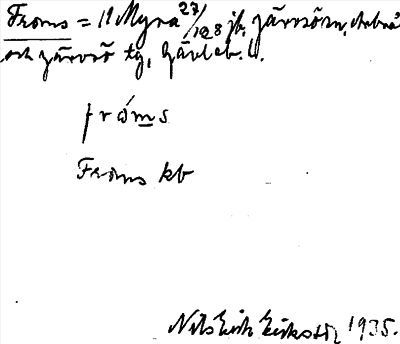 Froms = 11 Myra 27/128 jb, Järvsö sn, Arbrå
och Järvsö tg, Gävleb. l.
fróms
Froms kb
Nils Erik Eriksson 1935.